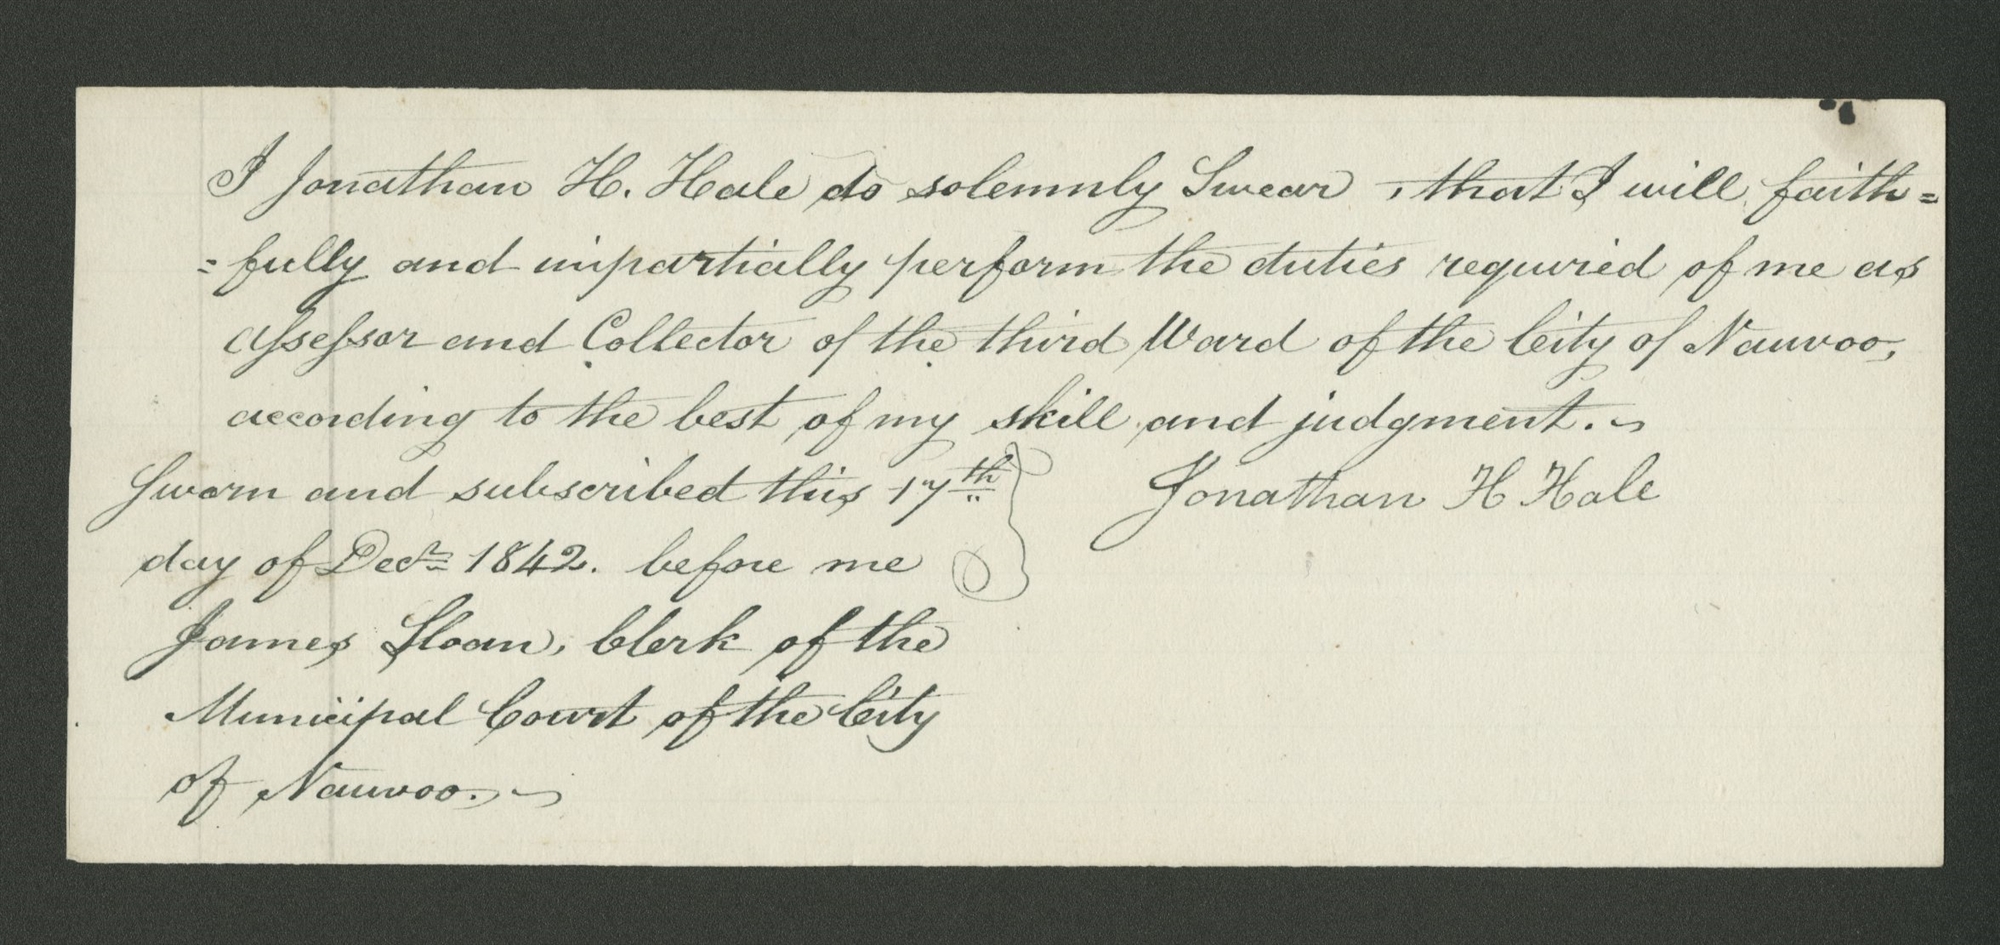 I Jonathan H. Hale do solemnly Swear, that I will faith=
=fully and impartially perform the duties required of me as
Assessor and Collector of the third Ward of the City of Nauvoo,
according to the best of my skill and judgment.
Sworn and subscribed this 17th
Jonathan H Hale
day of Decr. 1842. before me
James Sloan, Clerk of the
Municipal Court of the City
of Nauvoo.